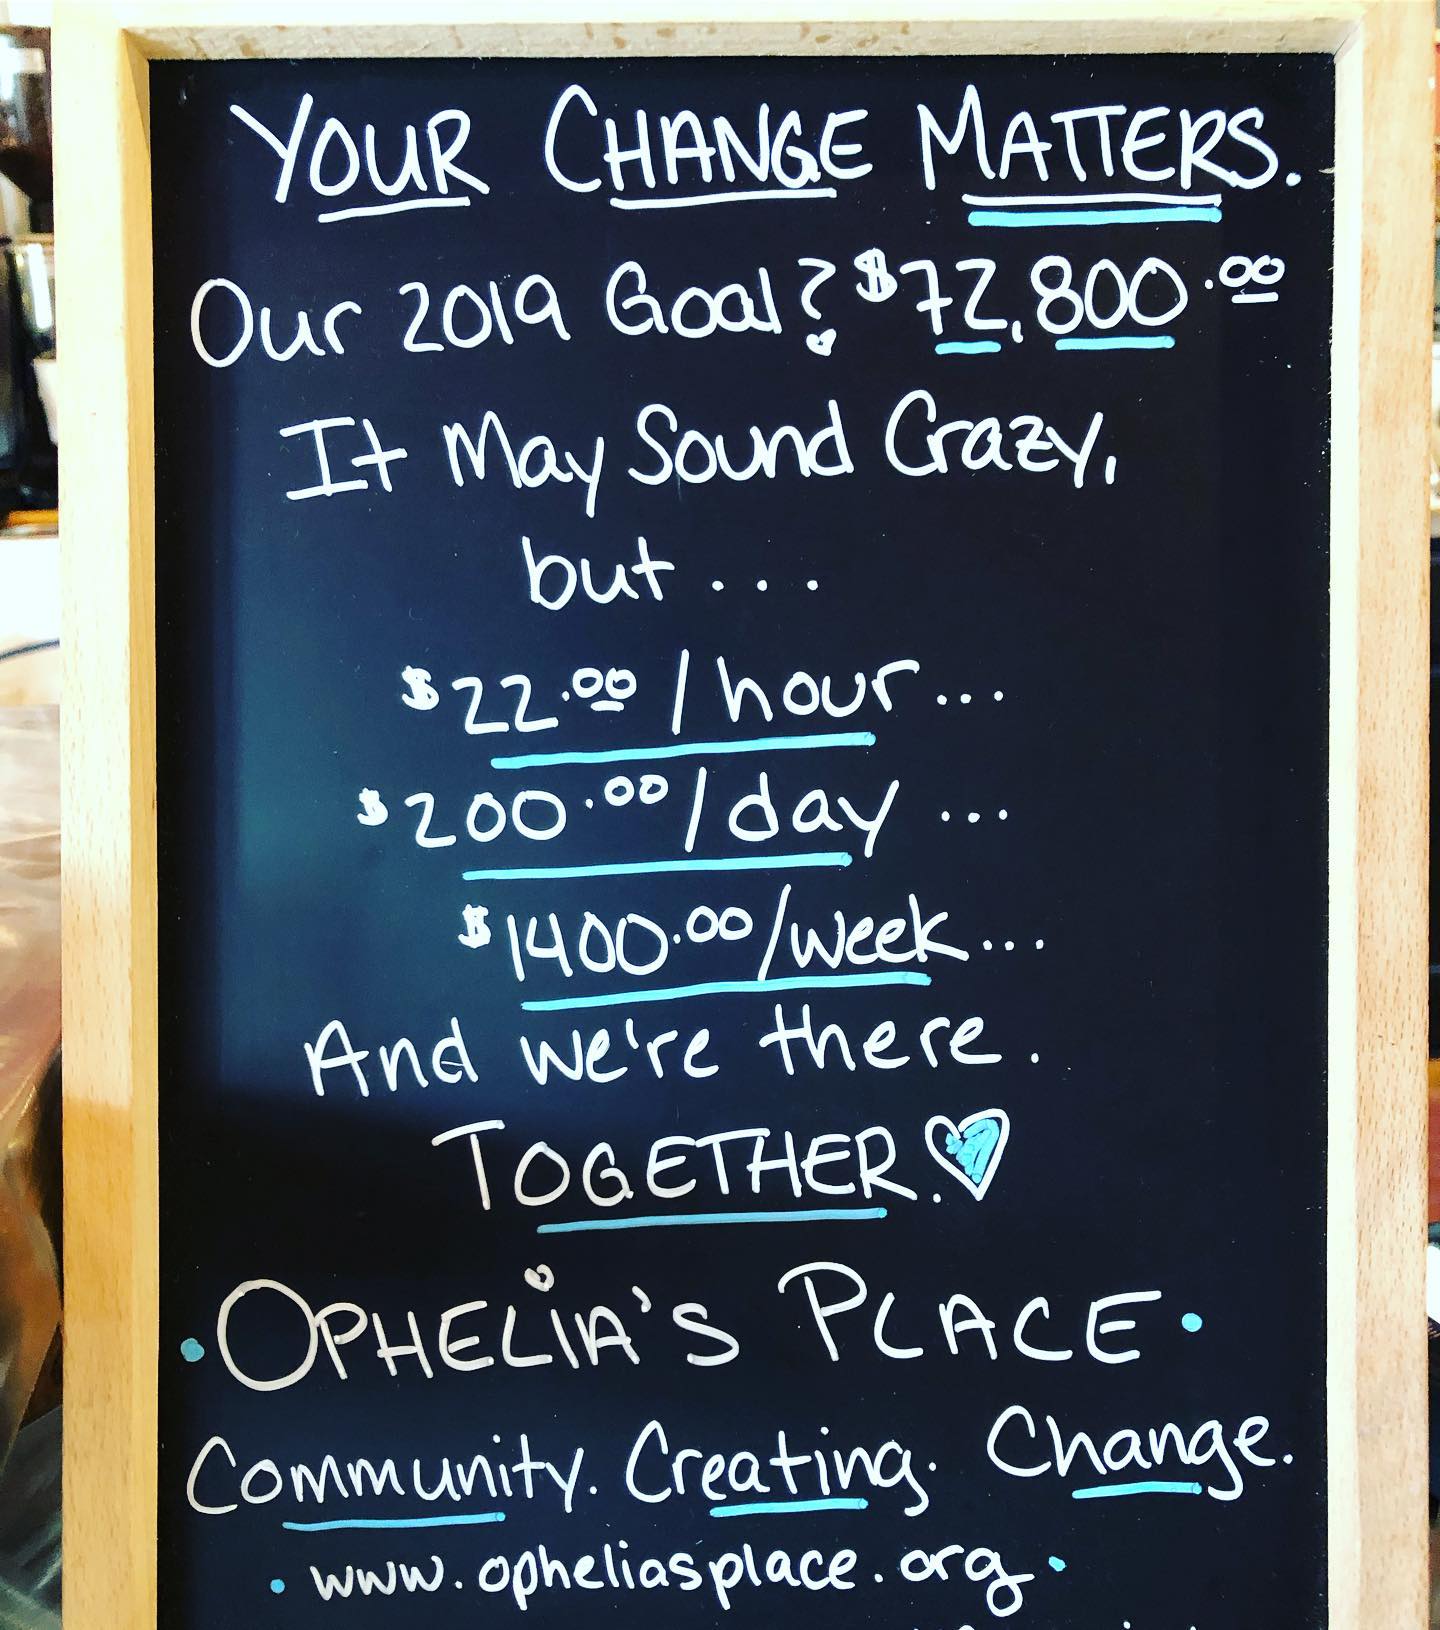 YOUR CHANGE MATTERS.
Our 2019 Goal? $72,800.00
It May Sound Crazy,
but...
$22.00/hour...
$200.00/day...
$1400.00/week...
And we're there.
TOGETHER.
OPHELiA'S PLACE
Community. Creating. Change.
www.opheliasplace.org